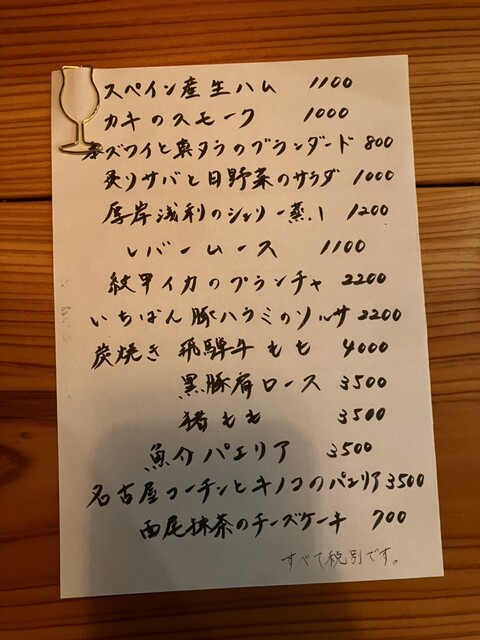 スペイン産生ハム 1100
カキのスモーク 1000
本ズワイと真タラのブランダード 800
炙りサバと日野菜のサラダ 1000
厚岸浅利のシェリー蒸し 1200
レバームース 1100
紋甲イカのプランチャ 2200
いちばん豚ハラミのソルサ 2200
炭焼き 飛騨牛もも 4000
黒豚肩ロース 3500
猪もも 3500
魚介パエリア 3500
名古屋コーチンとキノコのパエリア 3500
西尾抹茶のチーズケーキ 700
すべて税別です。